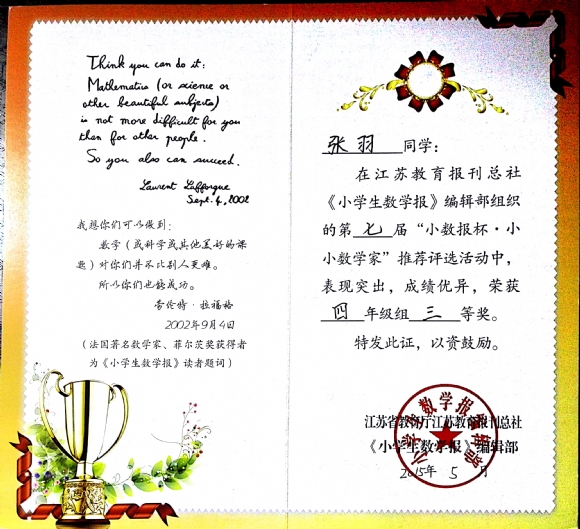 Think you can do it:
Mathematics (or science or
other beautiful subjects)
is not more difficult for you
than for other people.
So you also can succeed.
Laurent Lafforgue
Sept. 4, 2002
我想你们可以做到:
数学(或科学或其他美好的课
题)对你们并不比别人更难。
所以你们也能成功。
劳伦特·拉福格
2002年9月4日
(法国著名数学家、菲尔茨奖获得者
为《小学生数学报》读者题词)
张羽 同学:
在江苏教育报刊总社
《小学生数学报》编辑部组织
的第 七 届“小数报杯·小
小数学家”推荐评选活动中,
表现突出,成绩优异,荣获
四 年级组 三 等奖。
特发此证,以资鼓励。
江苏省教育厅江苏教育报刊总社
《小学生数学报》编辑部
2015年 5 月
小学生数学报编辑部